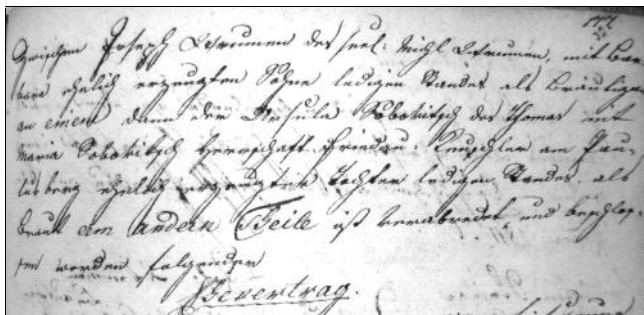 Zwischen Joseph Wrumen des seel: Michl Wrumen, mit Bar-
bara ehelich erzeugten Sohne ledigen Standes als Bräutigam
an einem dann der Ursula Sobotitsch des Thomas mit
Maria Sobotitsch Herrschaft Friedau: Keuschler am Pau-
lusberg ehelich erzeugter Tochter ledigen Standes. als
Braut am andern Theile ist verabredet und beschlos
sen worden folgender
Ehevertrag.